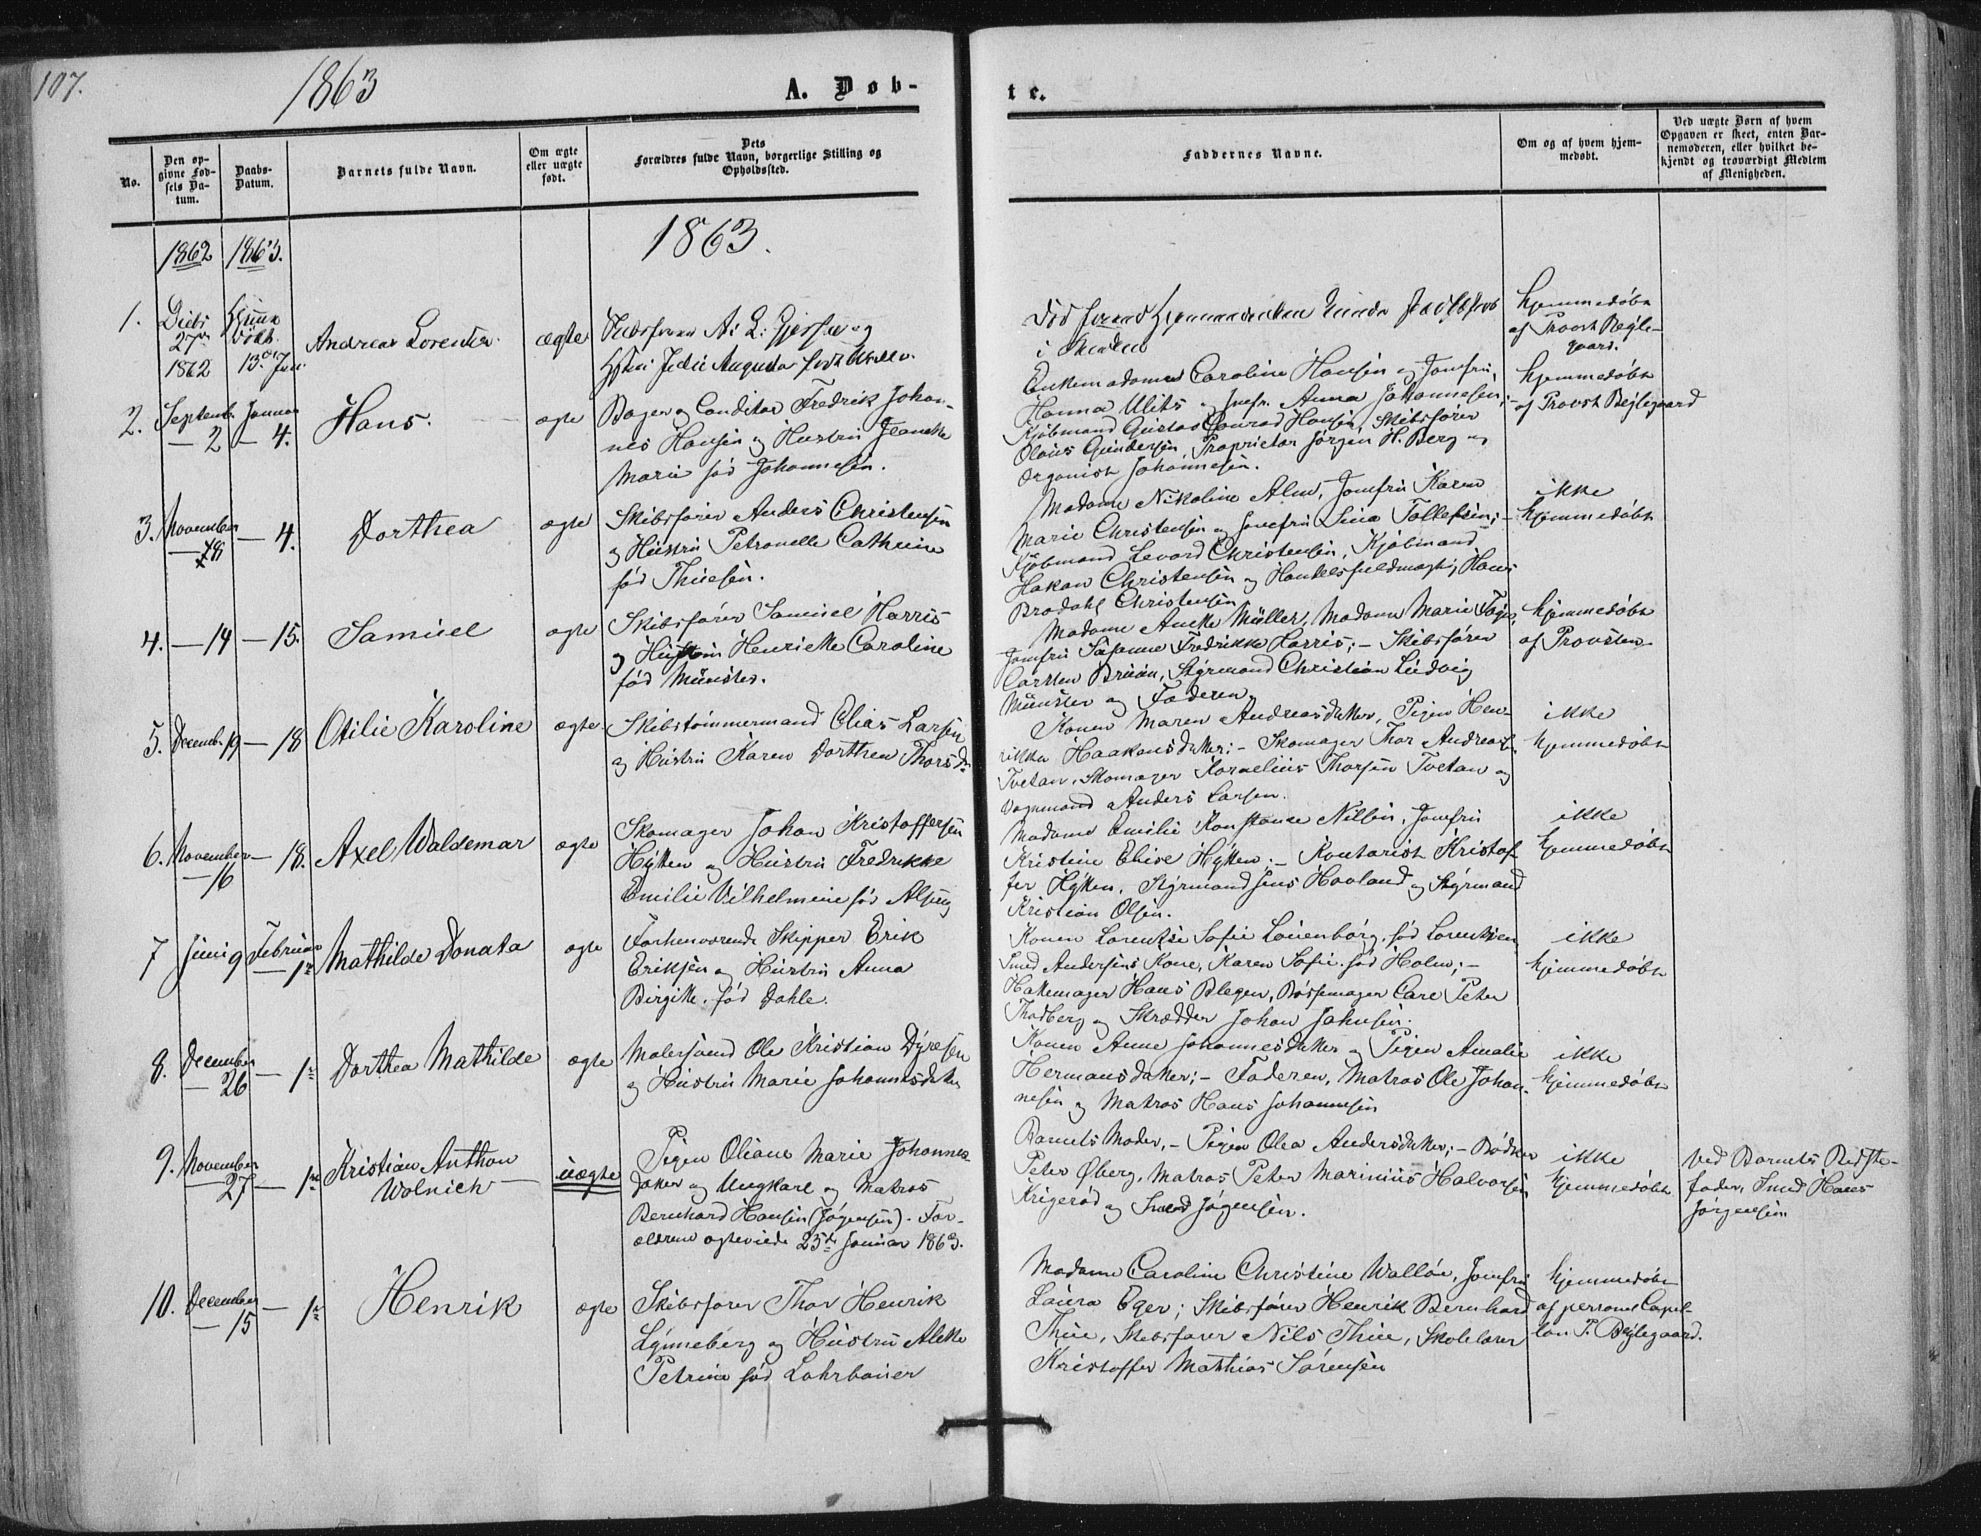 107.
1863
A. Døb-
te.
No.
Den op-
givne Fød-
sels Da-
tum.
Daabs-
Datum.
Barnets fulde Navn.
Om ægte
eller uægte
født.
Dets
Forældres fulde Navn, borgerlige Stilling og
Opholdssted.
Faddernes Navne.
Om og af hvem hjem-
medøbt.
Ved uægte Børn af hvem
Opgaven er skeet, enten Bar-
nemoderen, eller hvilket be-
kjendt og troværdigt Medlem
af Menigheden.
1862
1863.
1863.
1.
27de
1862
13de Jan.
Andreas Lorentz.
ægte
Augusta født
Død
hjemmedøbt
af Provst Bejle-
gaard.
2.
Septemb.
2
Januar
4.
Hans.
ægte
Bager og Conditor Fredrik Johan-
nes Hansen og Hustru Jeanette
Marie fød Johannesen.
Enkemadame Caroline Hansen og Jomfru
Hanna Ulits og Jmfr. Anna Johannesen;
Kjøbmand Gustav Conrad Hansen, Skibsfører
Olaus Gundersen, Proprietær Jørgen H. Berg og
Organist Johannesen.
hjemmedøbt
af Provst Bejlegaard
3.
November
18
— 4.
Dorthea
ægte
Skibsfører Anders Christensen
og Hustru Petronelle Cathrine
fød Thuesen.
Madame Nikoline Alm, Jomfru Karen
Marie Christensen og Jomfru Lina Tollefsen;
Kjøbmand Levord Christensen, Kjøbmand
Hakan Christensen og Handelsfuldmægtig Hans
Brodahl Christensen
ikke
hjemmedøbt
4.
— 14
— 15.
Samuel
ægte
Skibsfører Samuel Harris
og Hustru Henriette Caroline
fød Münster.
Madame Anette Müller, Madame Marie
Jomfru Susanne Fredrikke Harris; — Skibsfører
Carsten Bruun, Styrmand Christian Ludvig
Münster og Faderen
hjemmedøbt
af Provsten
5.
Decemb. 19
— 18
Otilie Karoline
ægte
Skibstømmermand Elias Larsen
og Hustru Karen Dorthea Thorsdr
Konen Maren Andreasdatter, Pigen Hen-
rikke Haakensdatter; — Skomager Thor Andreas.
Tvetan, Skomager Kornelius Thorsen Tvetan og
Vognmand Anders Larsen.
ikke
hjemmedøbt
6.
November
16
— 18.
Axel Waldemar
ægte
Skomager Johan Kristoffersen
Hytten og Hustru Fredrikke
Emilie Vilhelmine fød
Madame Emilie Konstance Nilsen, Jomfru
Kristine Elise Hytten; — Kontorist Kristof-
fer Hytten, Styrmand Jens Havland og Styrmand
Kristian Olsen.
ikke
hjemmedøbt
7
Juni 9
Februar
— 1ste
Mathilde Donata
ægte
Forhenværende Skipper Erik
Eriksen og Hustru Anna
Birgitte, fød Dahle.
Konen Lorentze Sofie Lövenborg, fød Lorentzen
Smed Andersens Kone, Karen Sofie fød Holm; —
Hattemager Hans Blegen, Bøssemager Carl Peter
Thodberg og Skrædder Johan Johnsen.
ikke
hjemmedøbt
8.
December
— 26
— 1ste
Dorthea Mathilde
ægte
Malersvend Ole Kristian Dyresen
og Hustru Marie Johannesdatter
Konen Anne Johannesdatter og Pigen Amalie
Hermansdatter; — Faderen, Matros Ole Johan-
nesen og Matros Hans Johannesen
ikke
hjemmedøbt
9.
November
27
— 1ste
Kristian Anthon
Wolnich
uægte
Pigen Oliane Marie Johannes-
datter og Ungkarl og Matros
Bernhard Hansen (Jørgensen). For-
ældrene ægteviede 25de Januar 1863.
Barnets Moder, — Pigen Olea Andersdatter; — Bødker
Peter Øberg, Matros Peter Marinius Halvorsen
Krigerød og Svend Jørgensen.
ikke
hjemmedøbt
Ved Barnets Bedste-
fader, Smed Hans
Jørgensen
10.
December
— 15
— 1ste
Henrik
ægte
Skibsfører Thor Henrik
Lynneberg og Hustru Alette
Petrine fød Lohrbauer
Madame Caroline Christine Walløe, Jomfru
Laura Eger; Skibsfører Henrik Bernhard
Thue, Skibsfører Nils Thue, Skolelærer
Kristoffer Mathias Sørensen
hjemmedøbt
af personel Capel-
lan P. Bejlegaard.